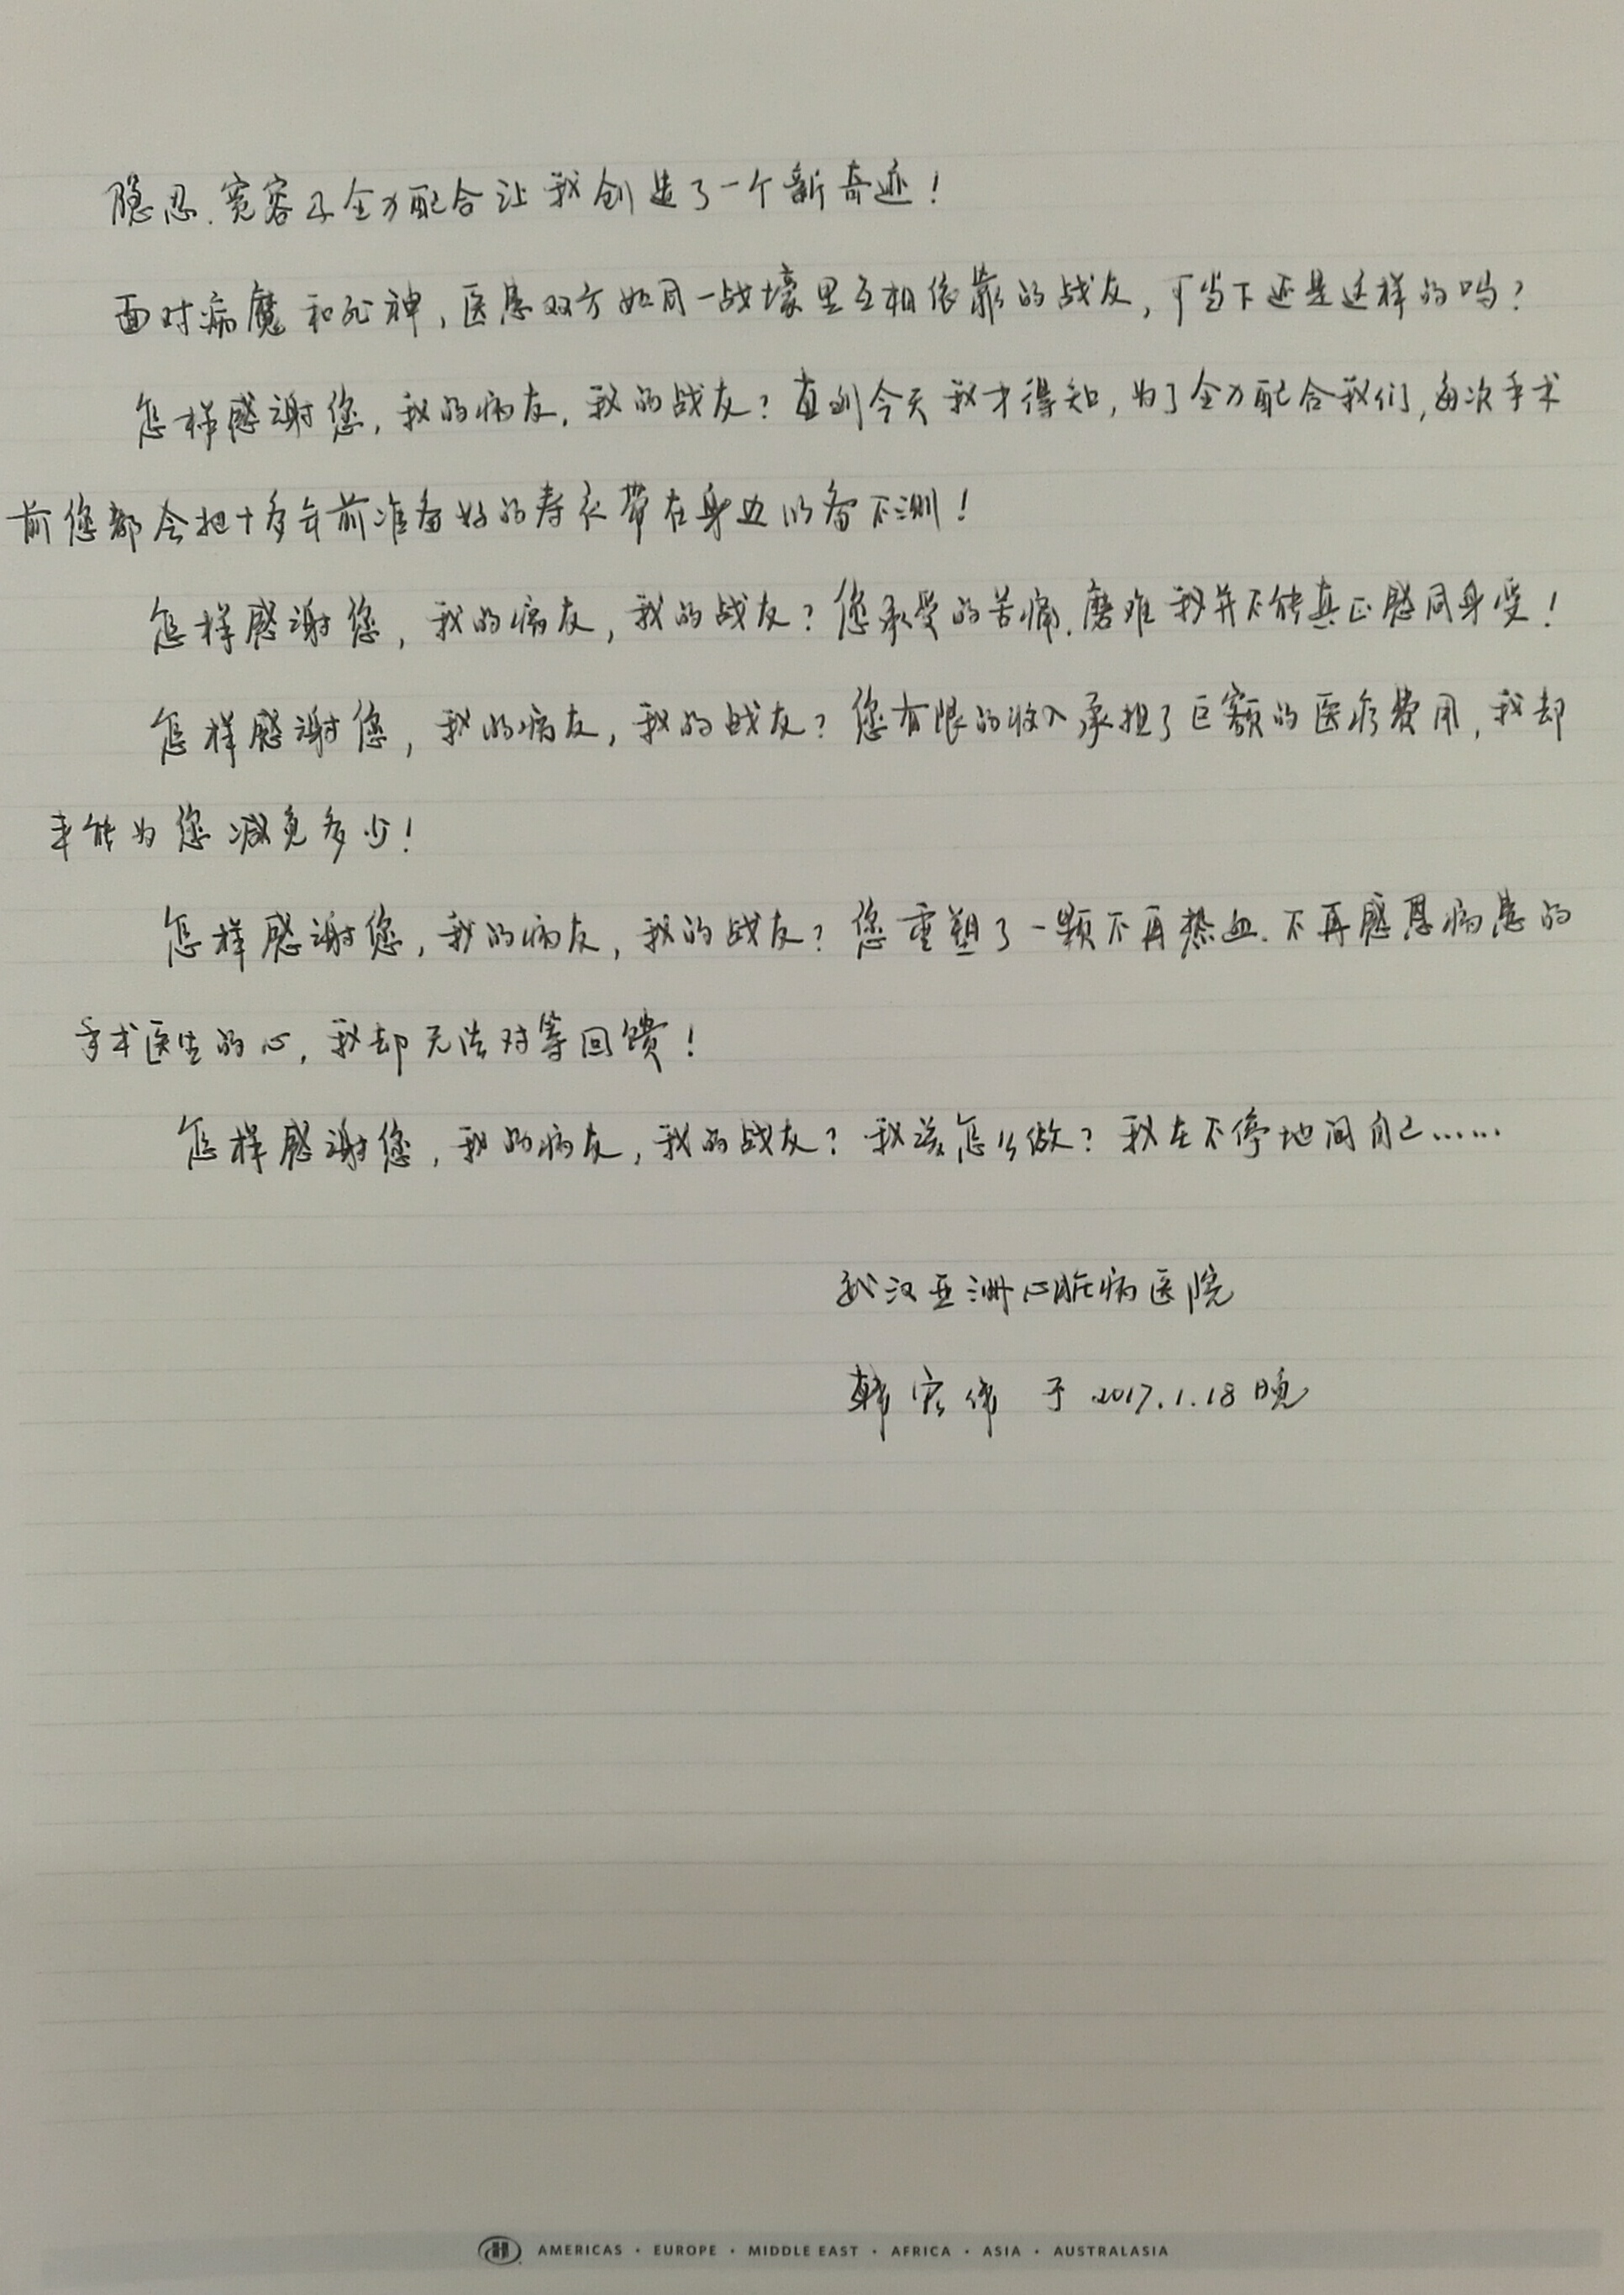 隐忍、宽容及全力配合让我创造了一个新奇迹！
面对病魔和死神，医患双方如同一战壕里互相依靠的战友，可当下还是这样的吗？
怎样感谢您，我的病友，我的战友？直到今天我才得知，为了全力配合我们，每次手术
前您都会把十多年前准备好的寿衣带在身边以备不测！
怎样感谢您，我的病友，我的战友？您承受的苦痛、磨难我并不能真正感同身受！
怎样感谢您，我的病友，我的战友？您有限的收入承担了巨额的医疗费用，我却
未能为您减免多少！
怎样感谢您，我的病友，我的战友？您重塑了一颗不再热血、不再感恩病患的
手术医生的心，我却无法对等回馈！
怎样感谢您，我的病友，我的战友？我该怎么做？我在不停地问自己……
武汉亚洲心脏病医院
韩宏伟 于 2017.1.18 晚
AMERICAS · EUROPE · MIDDLE EAST · AFRICA · ASIA · AUSTRALASIA